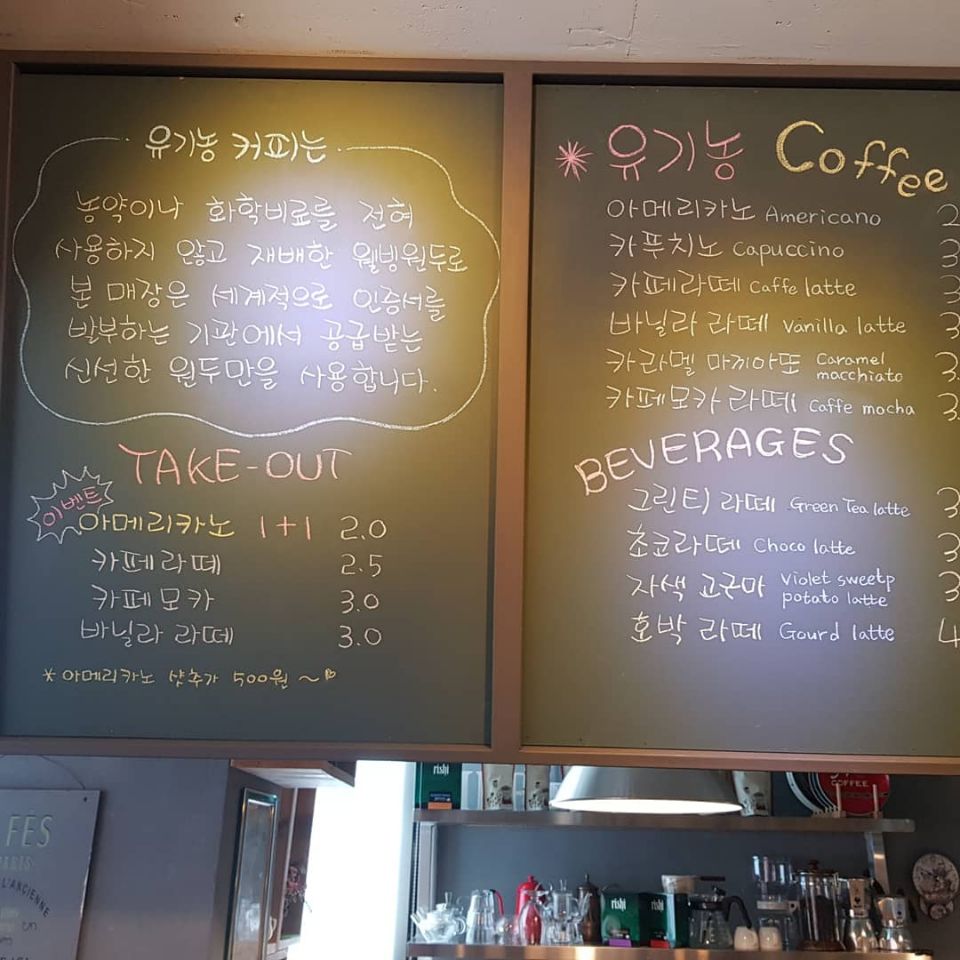 유기농 커피는
농약이나 화학비료를 전혀
사용하지 않고 재배한 웰빙원두로
본 매장은 세계적으로 인증서를
발부하는 기관에서 공급받는
신선한 원두만을 사용합니다.
TAKE-OUT
이벤트
아메리카노 1+1 2.0
카페라떼 2.5
카페모카 3.0
바닐라 라떼 3.0
* 아메리카노 샷추가 500원 ~
* 유기농 Coffee
아메리카노 Americano 2
카푸치노 Capuccino 3
카페라떼 Caffe latte 3
바닐라 라떼 Vanilla latte 3
카라멜 마끼아또 Caramel macchiato 3.
카페모카 라떼 Caffe mocha 3.
BEVERAGES
그린티 라떼 Green Tea latte 3
초코라떼 Choco latte 3
자색 고구마 Violet sweetp potato latte 3
호박 라떼 Gourd latte 4
rishi
COFFEE
FÉS
PARIS
L'ANCIENNE
rishi
rishi